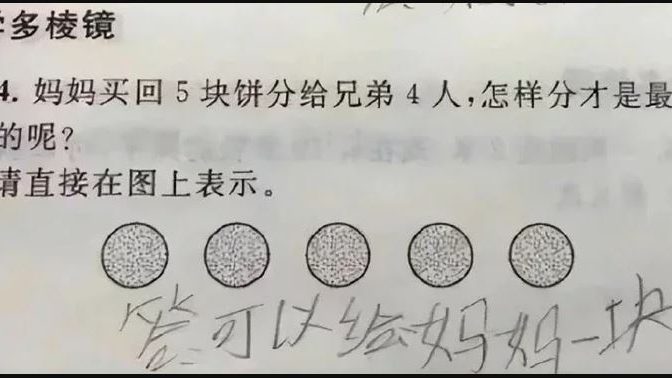 多棱镜
4. 妈妈买回 5 块饼分给兄弟 4 人,怎样分才是最
的呢?
请直接在图上表示。
答可以给妈妈一块